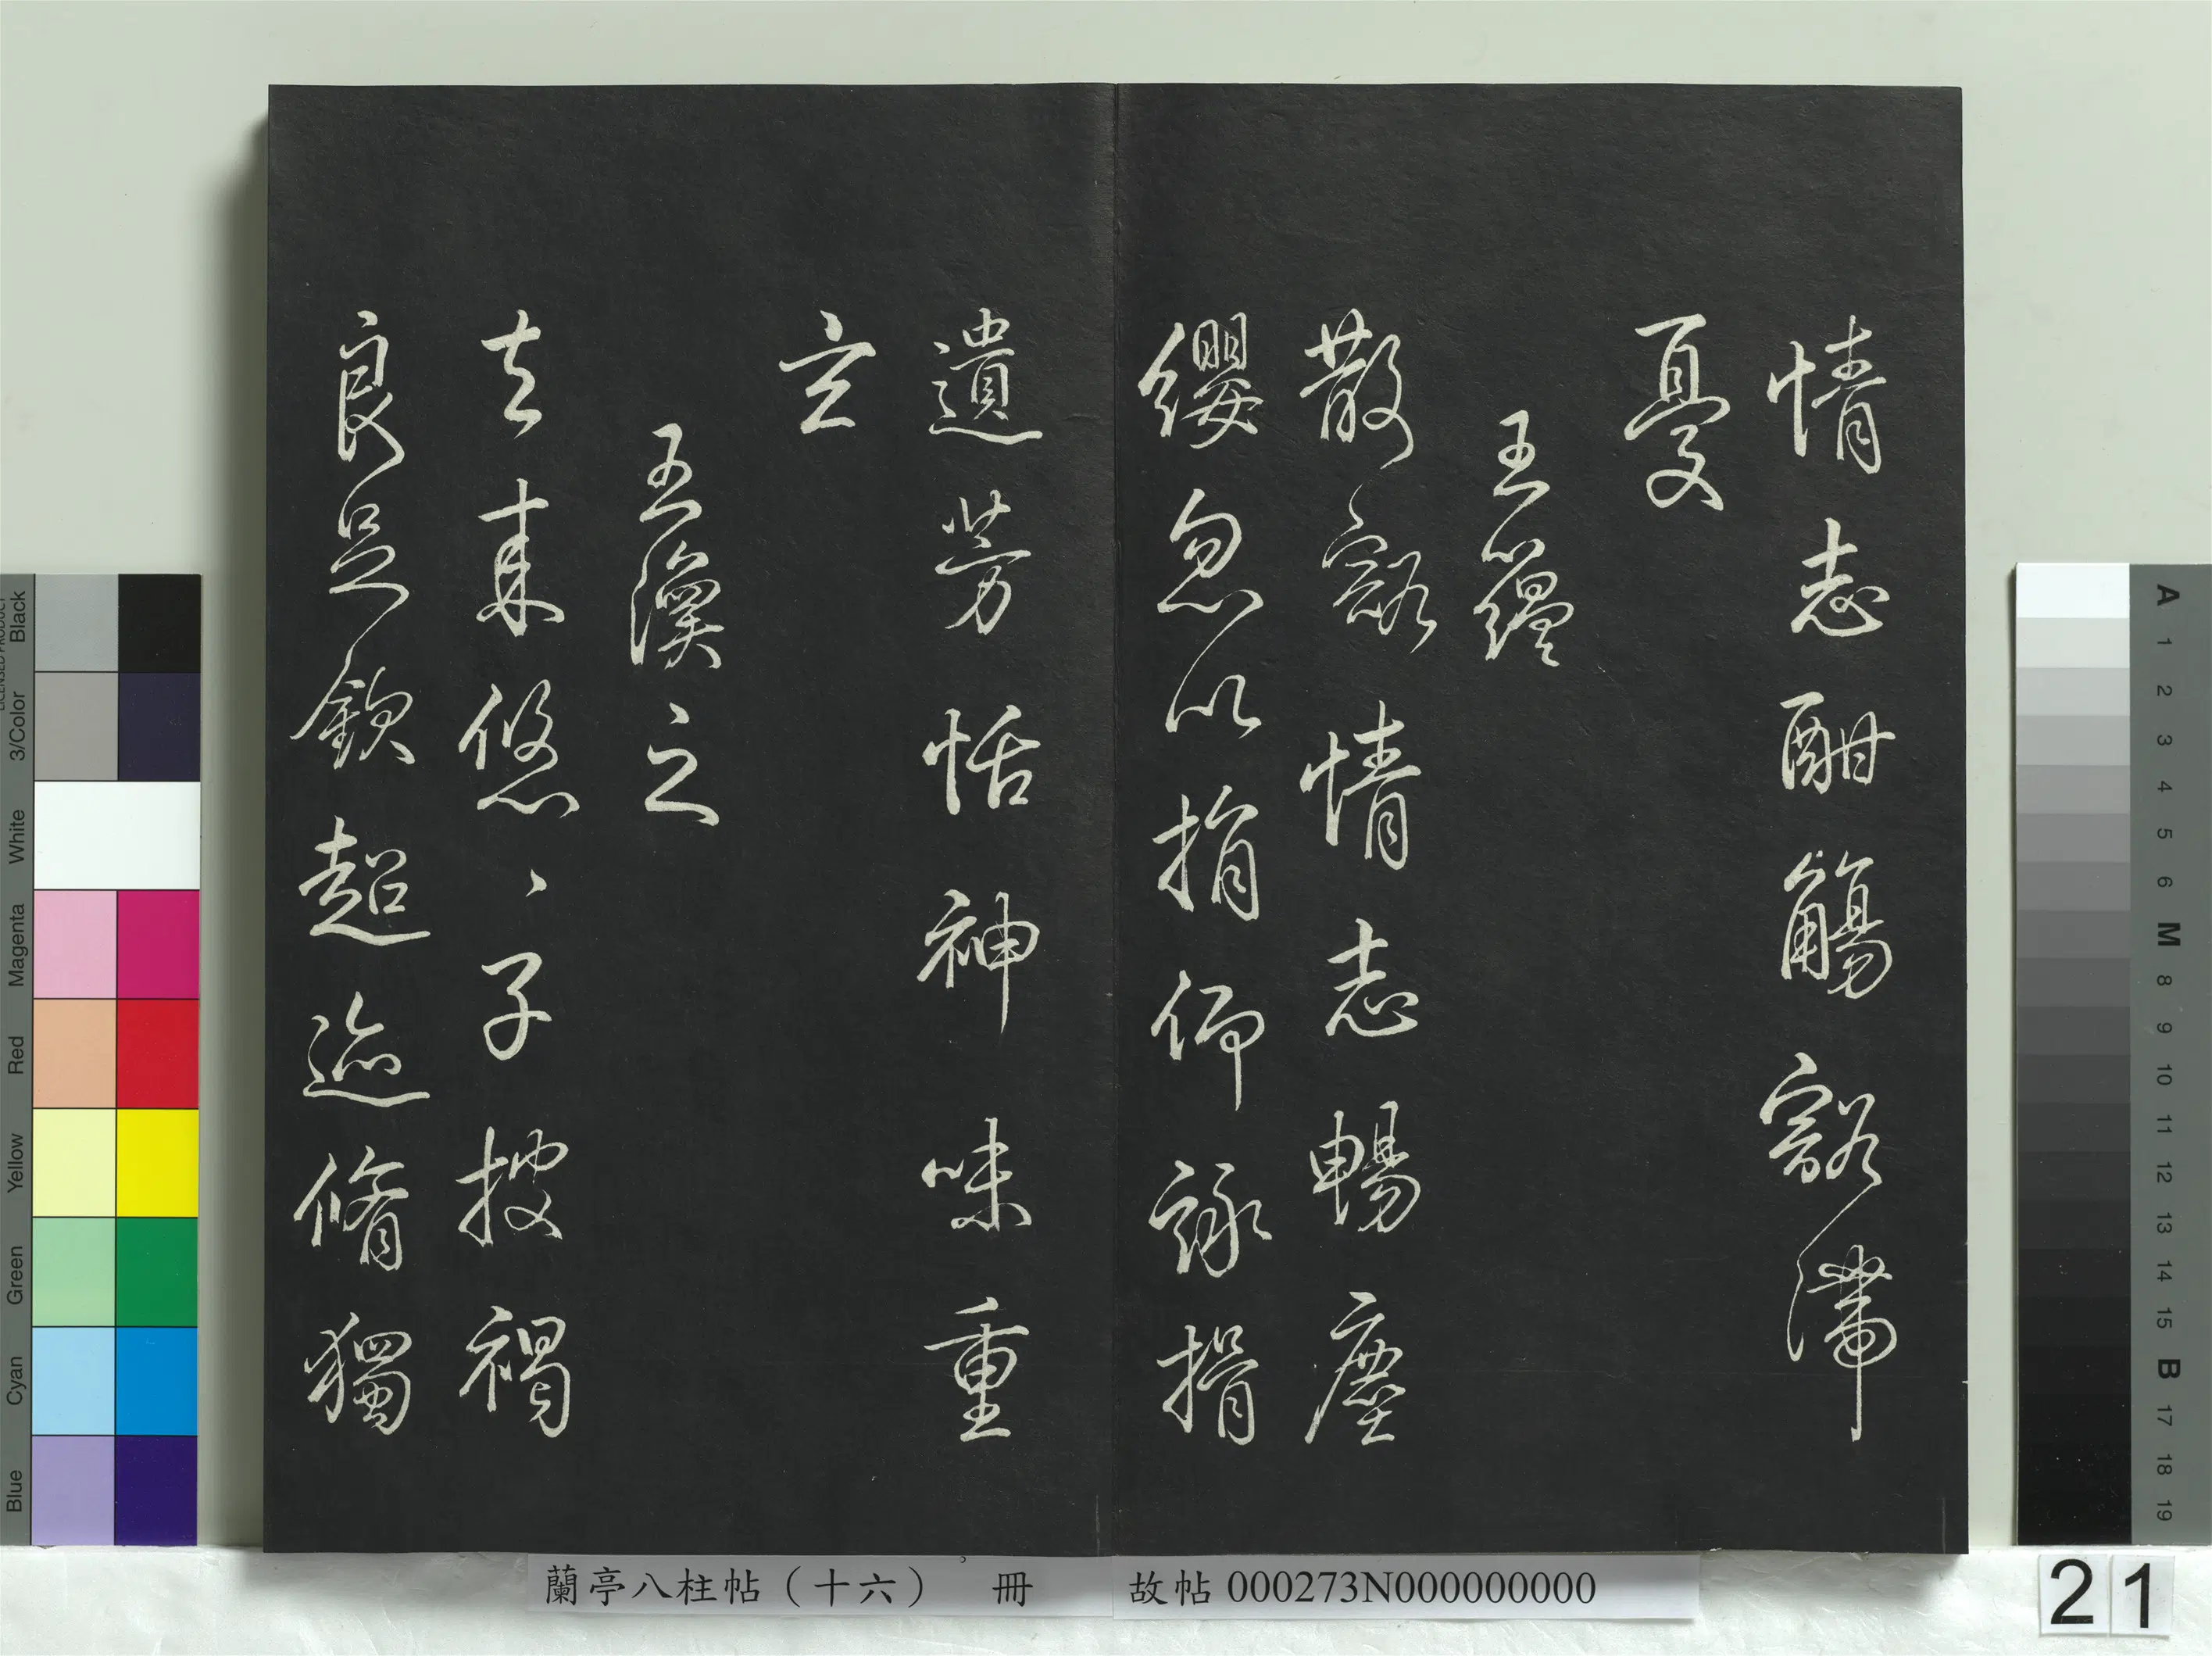 情志酣觴豁滯
憂
王蘊
散豁情志暢塵
纓忽以捐仰詠揖
遺芳恬神味重
玄
王渙之
去來悠〻子披褐
良足欽超迹脩獨
蘭亭八柱帖（十六） 冊
故帖 000273N000000000
21
Black
3/Color
White
Magenta
Red
Yellow
Green
Cyan
Blue
A
1
2
3
4
5
6
M
8
9
10
11
12
13
14
15
B
17
18
19